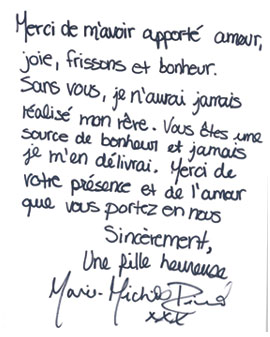 Merci de m'avoir apporté amour,
joie, frissons et bonheur.
Sans vous, je n'aurai jamais
réalisé mon rêve. Vous êtes une
source de bonheur et jamais
je m'en délivrai. Merci de
votre présence et de l'amour
que vous portez en nous
Sincèrement,
Une fille heureuse
Marie-Michèle
xxx